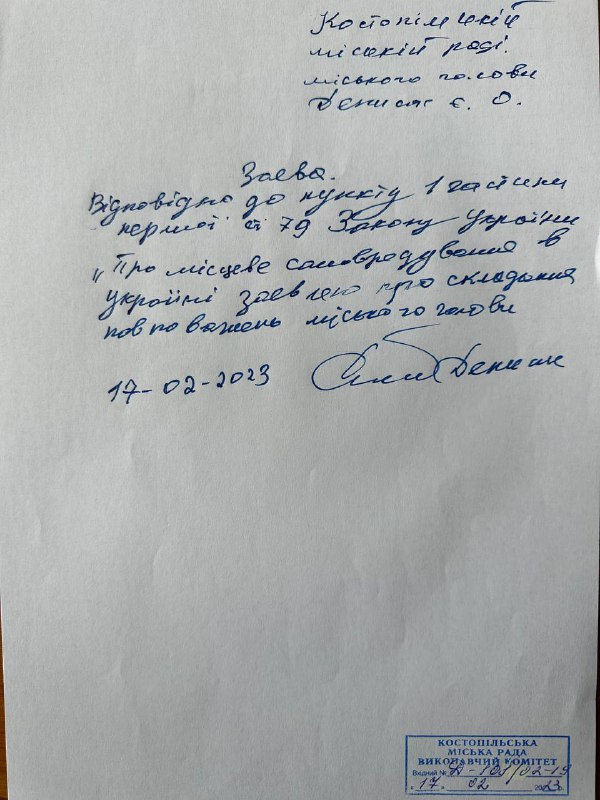 Костопільській
міській раді
міського голови
Денисюк Є. О.
Заява.
Відповідно до пункту 1 частини
першої ст 79 Закону України
„Про місцеве самоврядування в
Україні заявляю про складання
повноважень міського голови
17-02-2023 Денисюк
КОСТОПІЛЬСЬКА
МІСЬКА РАДА
ВИКОНАВЧИЙ КОМІТЕТ
Вхідний № Д-101/02-19
"17" 02 2023р.